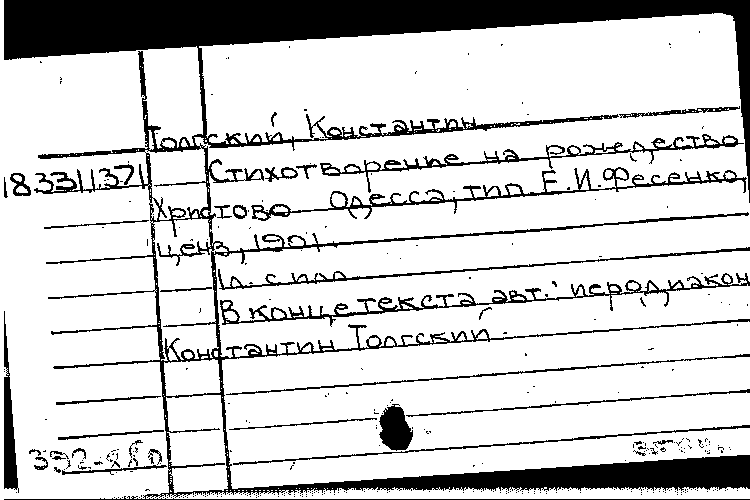 Толгский, Константин.
18.331.1.371 Стихотворение на рождество
Христово Одесса, тип. Е.И.Фесенко,
ценз, 1901.
1л. с илл
В конце текста авт.: иеродиакон
Константин Толгский.
392-880